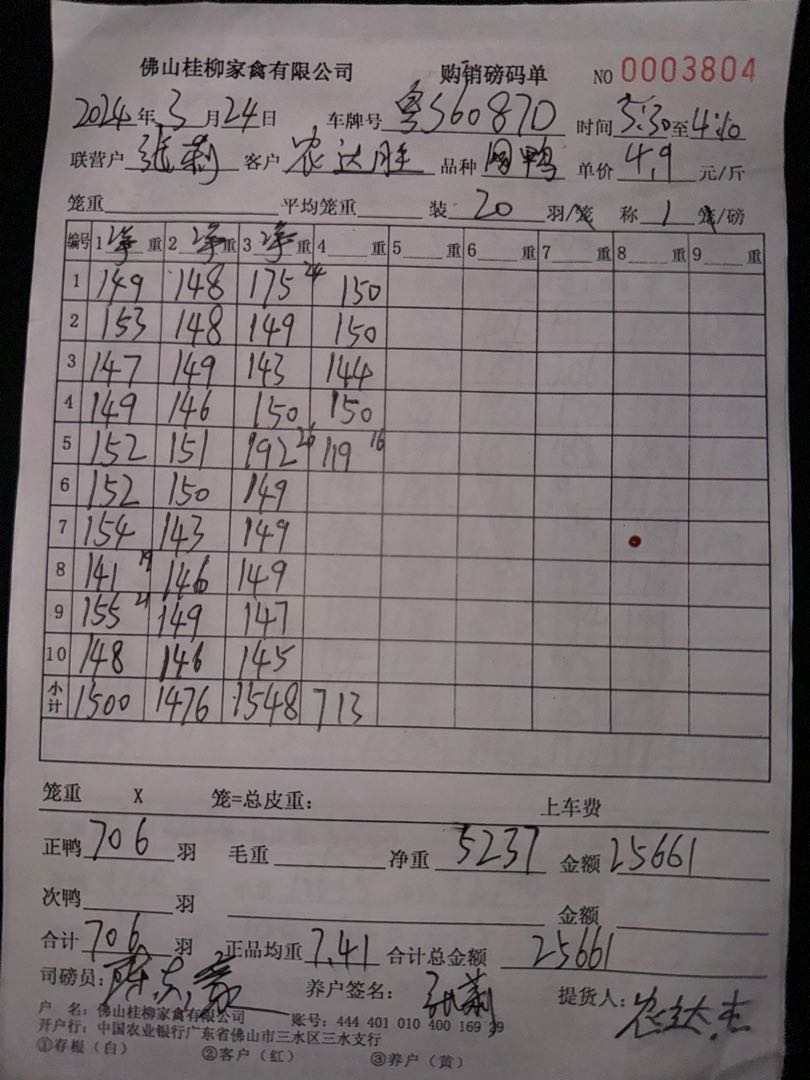 佛山桂柳家禽有限公司 购销磅码单 NO 0003804
2024年3月24日 车牌号 粤S6087D 时间 3:30至4:10
联营户 张莉 客户 农达胜 品种 鸭 单价 4.9 元/斤
笼重 平均笼重 装 20 羽/笼 称 1 笼/磅
编号 1 净重 2 净重 3 净重 4 重 5 重 6 重 7 重 8 重 9 重
1 149 148 175 24 150
2 153 148 149 150
3 147 149 143 144
4 149 146 150 150
5 152 151 192 26 119 16
6 152 150 149
7 154 143 149
8 141 19 146 149
9 155 21 149 147
10 148 146 145
小计 1500 1476 1548 713
笼重 X 笼=总皮重: 上车费
正鸭 706 羽 毛重 净重 5237 金额 25661
次鸭 羽 金额
合计 706 羽 正品均重 7.41 合计总金额 25661
司磅员: 养户签名: 张莉 提货人: 农达
户 名: 佛山桂柳家禽有限公司 账号: 444 401 010 400 169 39
开户行: 中国农业银行广东省佛山市三水区三水支行
①存根(白) ②客户(红) ③养户(黄)